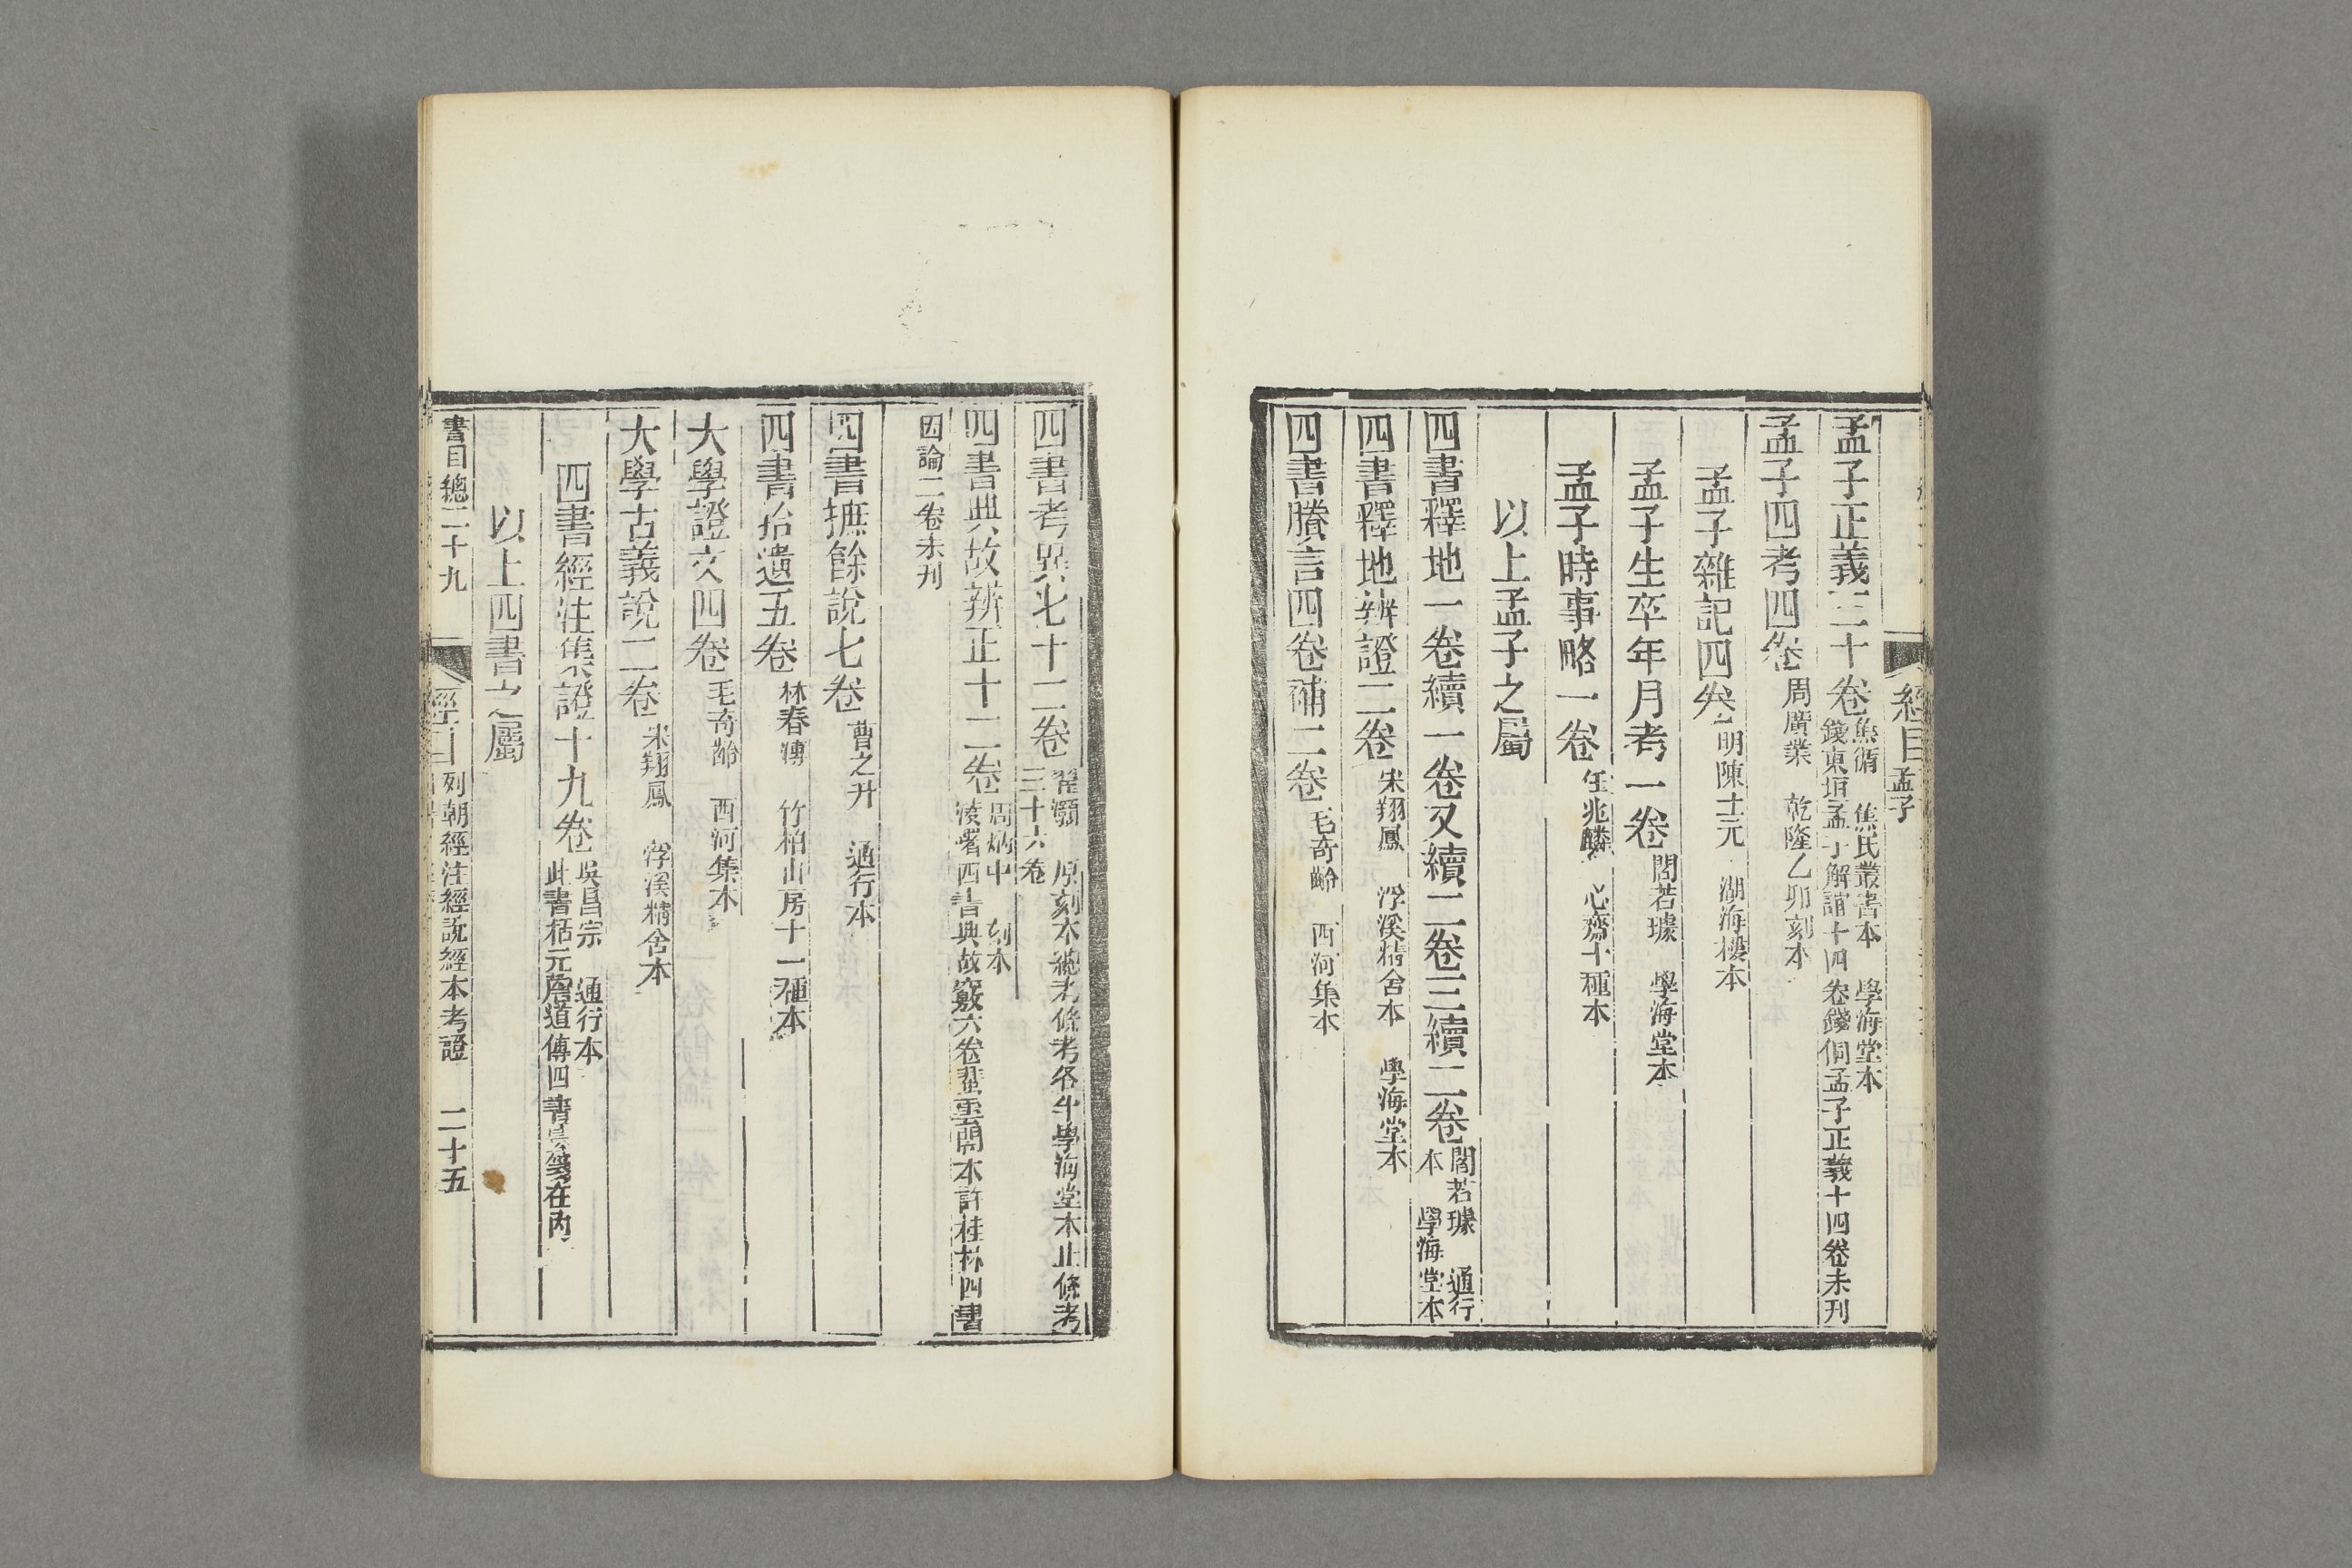 經目 孟子
孟子正義三十卷 焦循 焦氏叢書本 學海堂本
錢東垣孟子解誼十四卷錢侗孟子正義十四卷未刊
孟子四考四卷 周廣業 乾隆乙卯刻本
孟子雜記四卷 明陳士元 湖海樓本
孟子生卒年月考一卷 閻若璩 學海堂本
孟子時事略一卷 任兆麟 心齋十種本
以上孟子之屬
四書釋地一卷續一卷又續二卷三續二卷 閻若璩 通行
本 學海堂本
四書釋地辨證二卷 宋翔鳳 浮溪精舍本 學海堂本
四書賸言四卷補二卷 毛奇齡 西河集本
四書考異七十二卷 翟灝 原刻本總考條考各半學海堂本止條考
三十六卷
四書典故辨正十二卷 周炳中 刻本
淩曙四書典故竅六卷翟雲開本許桂林四書
因論二卷未刊
四書摭餘說七卷 曹之升 通行本
四書拾遺五卷 林春溥 竹柏山房十一種本
大學證文四卷 毛奇齡 西河集本
大學古義說二卷 宋翔鳳 浮溪精舍本
四書經注集證十九卷 吳昌宗 通行本
此書括元詹道傳四書纂箋在內
以上四書之屬
書目總二十九 經目 列朝經注經說經本考證 二十五